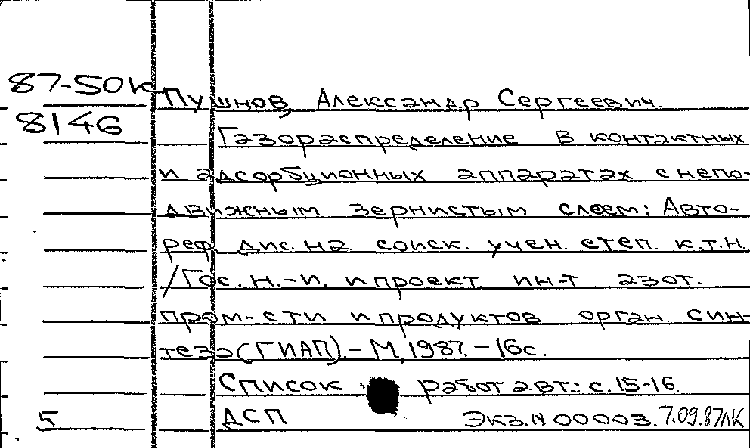 87-50к
8146
Пушнов, Александр Сергеевич.
Газораспределение в контактных
и адсорбционных аппаратах с непо-
движным зернистым слоем: Авто-
реф. дис. на соиск. учен. степ. к.т.н.
/Гос. н.-и. и проект. ин-т азот.
пром-сти и продуктов орган. син-
теза (ГИАП). - М, 1987. - 16с.
Список работ авт.: с. 15-16.
5 ДСП Экз. N 00003. 7.09.87ЛК